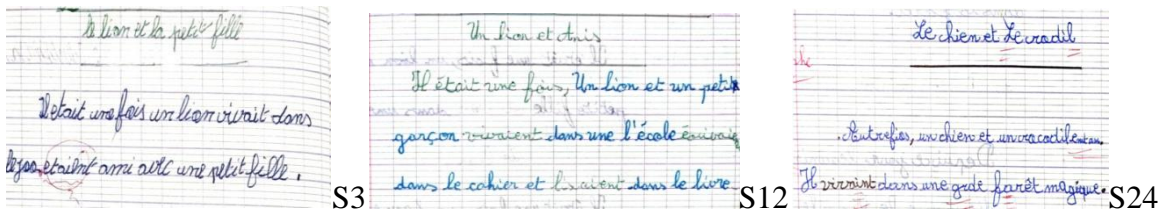 le lion et la petit fille
Il etait une fois un lion vivait dans
le zoo, etailnt ami avec une petit fille.
S3
Un lion et Anis
Il était une fois, Un lion et un petit
garçon vivaient dans une l'école écrivaie
dans le cahier et lisaient dans le livre
S12
Le chien et Le crodil
Autrefois, un chien et un cracodil
Il virraint dans une grde farêt magique.
S24